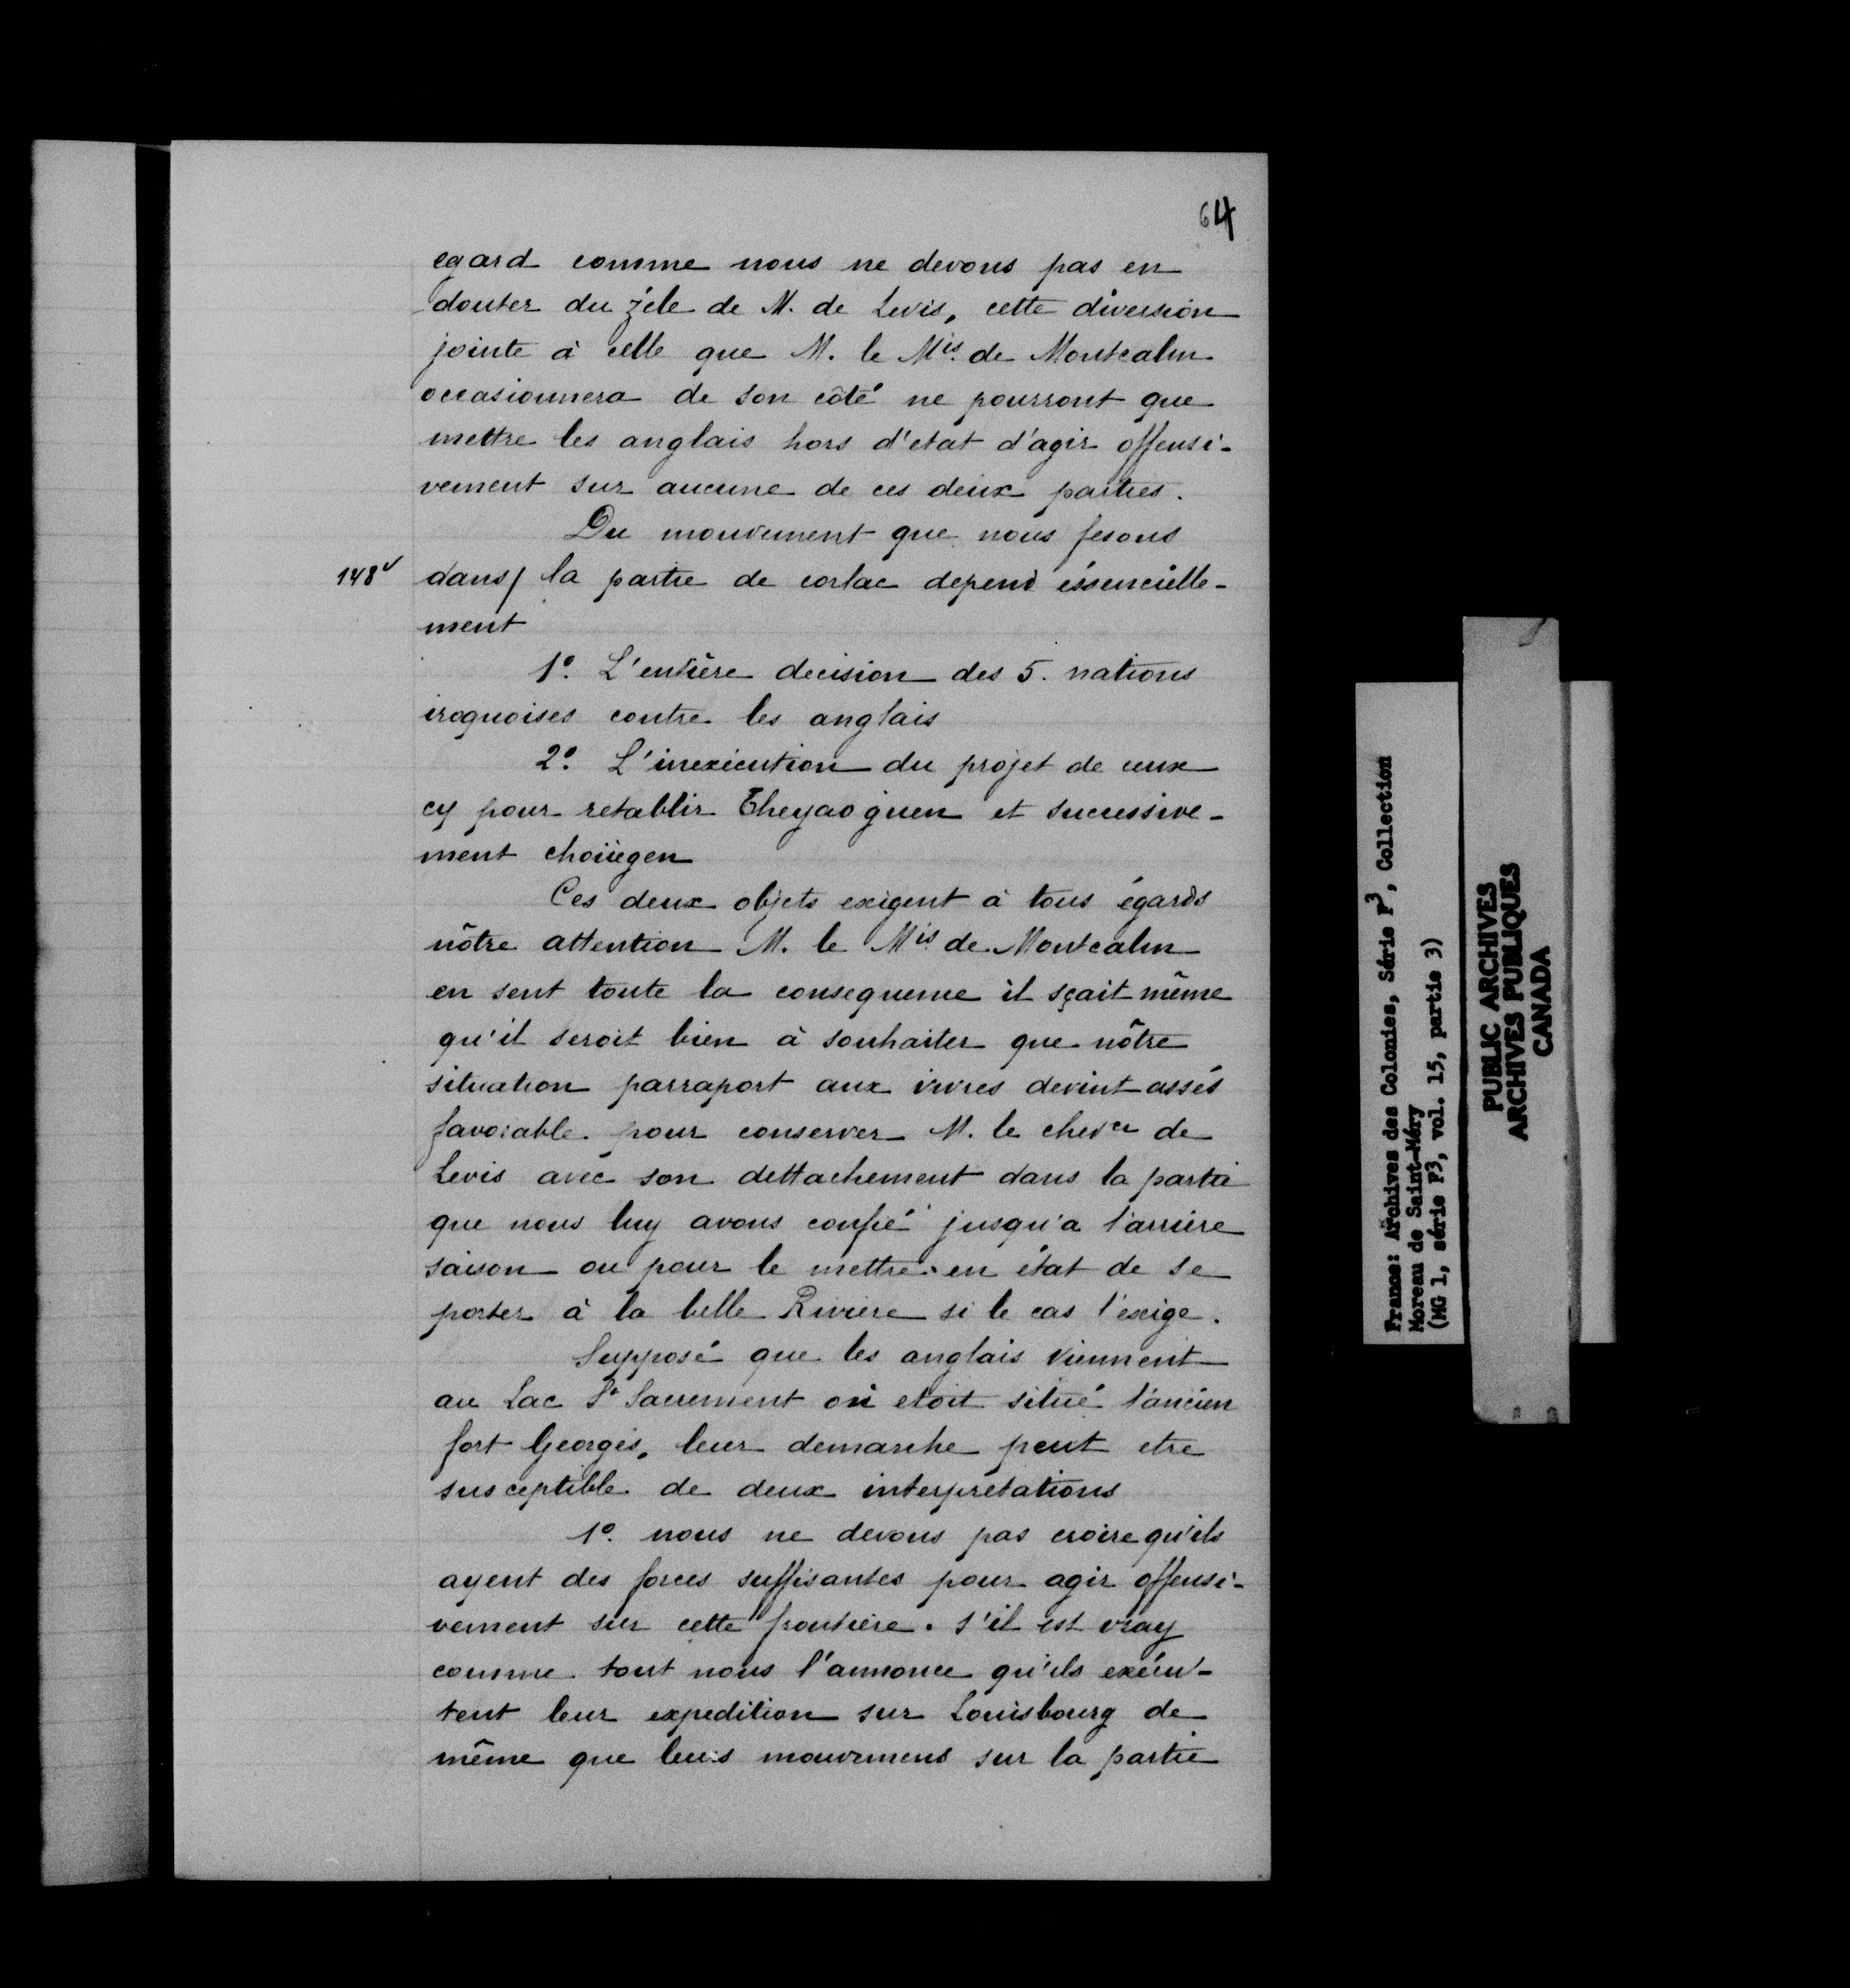 64
egard comme nous ne devons pas en
douter du zéle de M. de Levis, cette diversion
jointe à celle que M. le Mis. de Montcalm
occasionnera de son côté ne pourront que
mettre les anglais hors d'etat d'agir offensi-
vement sur aucune de ces deux parties.
Du mouvement que nous fesons
148v dans/ la partie de corlac depend éssencielle-
ment
1º. L'entière decision des 5. nations
iroquoises contre les anglais
2º. L'inexécution du projet de ceux
cy pour retablir Theyaoguen et successive-
ment choüegen
Ces deux objets exigent à tous égards
nôtre attention M. le Mis. de Montcalm
en sent toute la consequence il sçait même
qu'il seroit bien à souhaiter que nôtre
situation parraport aux vivres devint assés
favorable pour conserver M. le chever de
Levis avec son dettachement dans la partie
que nous luy avons confié jusqu'a l'arriere
saison ou pour le mettre en état de se
porter à la belle Riviere si le cas l'exige.
Supposé que les anglais viennent
au Lac St Sacrement où etoit situé l'ancien
fort Georges, leur demarche peut etre
susceptible de deux interprétations
1º. nous ne devons pas croire qu'ils
ayent des forces suffisantes pour agir offensi-
vement sur cette frontière. s'il est vray
comme tout nous l'annonce qu'ils exécu-
tent leur expedition sur Louisbourg de
même que leurs mouvemens sur la partie
France: Archives des Colonies, Série F3, Collection
Moreau de Saint-Méry
(MG 1, série F3, vol. 15, partie 3)
PUBLIC ARCHIVES
ARCHIVES PUBLIQUES
CANADA